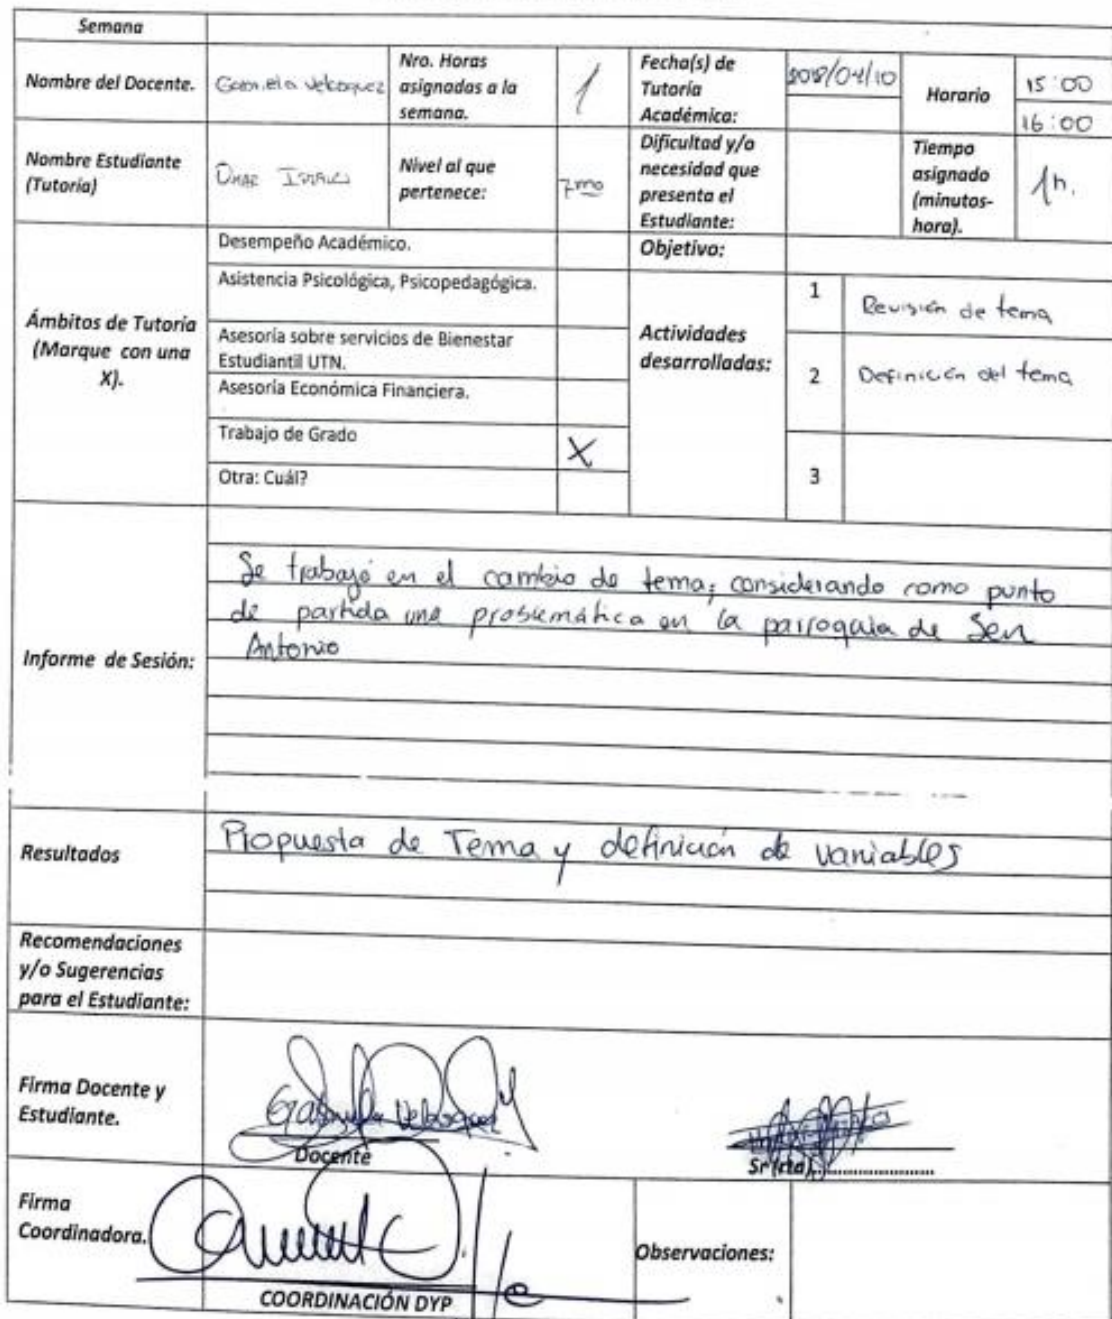 Semana
Nombre del Docente.
Gabriela Velasquez
Nro. Horas
asignadas a la
semana.
1
Fecha(s) de
Tutoría
Académica:
2018/04/10
Horario
15:00
16:00
Nombre Estudiante
(Tutoría)
Omar
Nivel al que
pertenece:
7mo
Dificultad y/o
necesidad que
presenta el
Estudiante:
Tiempo
asignado
(minutos-
hora).
1h.
Ámbitos de Tutoría
(Marque con una
X).
Desempeño Académico.
Asistencia Psicológica, Psicopedagógica.
Asesoría sobre servicios de Bienestar
Estudiantil UTN.
Asesoría Económica Financiera.
Trabajo de Grado
X
Otra: Cuál?
Objetivo:
Actividades
desarrolladas:
1
Revisión de tema
2
Definición del tema
3
Informe de Sesión:
Se trabajó en el cambio de tema; considerando como punto
de partida una problemática en la parroquia de San
Antonio
Resultados
Propuesta de Tema y definición de variables
Recomendaciones
y/o Sugerencias
para el Estudiante:
Firma Docente y
Estudiante.
Gabriela Velasquez
Docente
Sr (rta)..........................
Firma
Coordinadora.
COORDINACIÓN DYP
Observaciones: